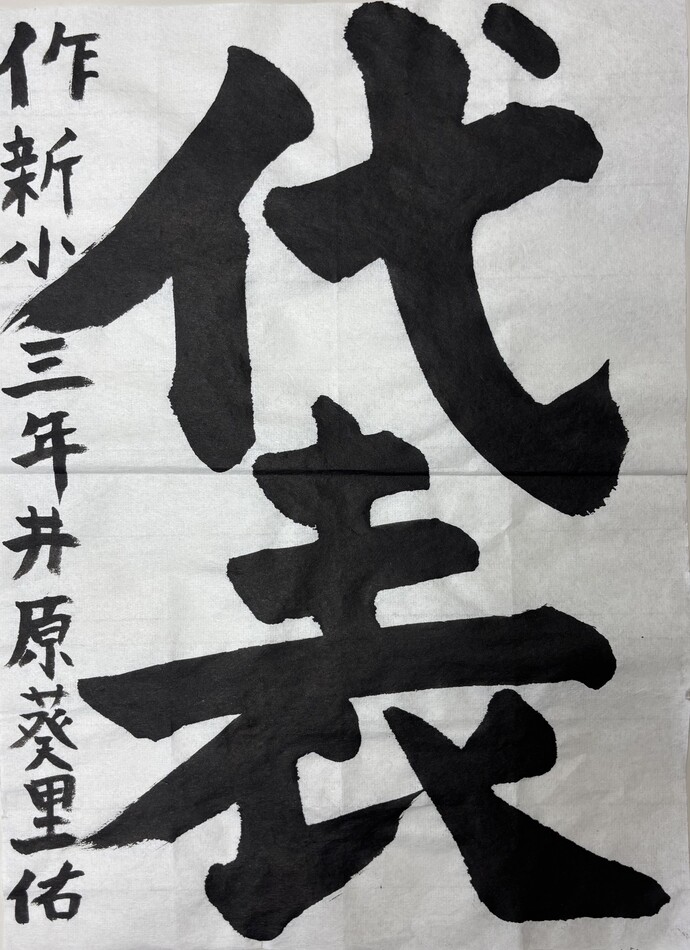 代表
作新小三年井原葵里佑